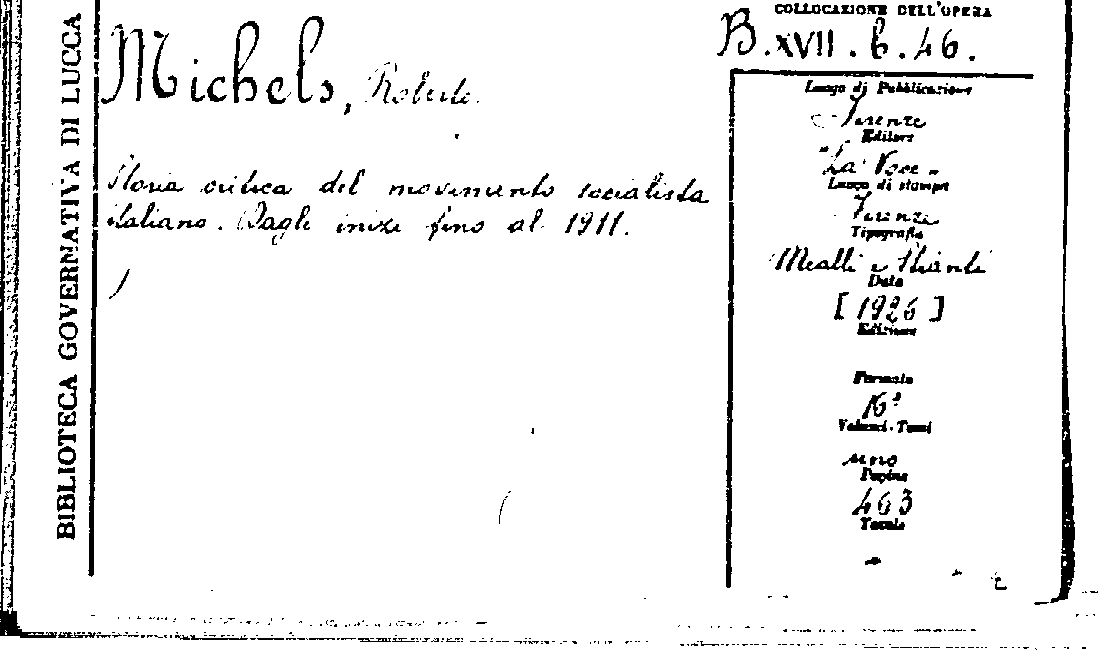 BIBLIOTECA GOVERNATIVA DI LUCCA
Michels, Roberto.
Storia critica del movimento socialista
italiano. Dagli inizi fino al 1911.
COLLOCAZIONE DELL'OPERA
B.XVII.b.46.
Luogo di Pubblicazione
Firenze
Editore
"La Voce"
Luogo di stampa
Firenze
Tipografia
Mealli e Stianti
Data
[1926]
Edizione
Formato
16°
Volumi-Tomi
uno
Pagine
463
Tavole